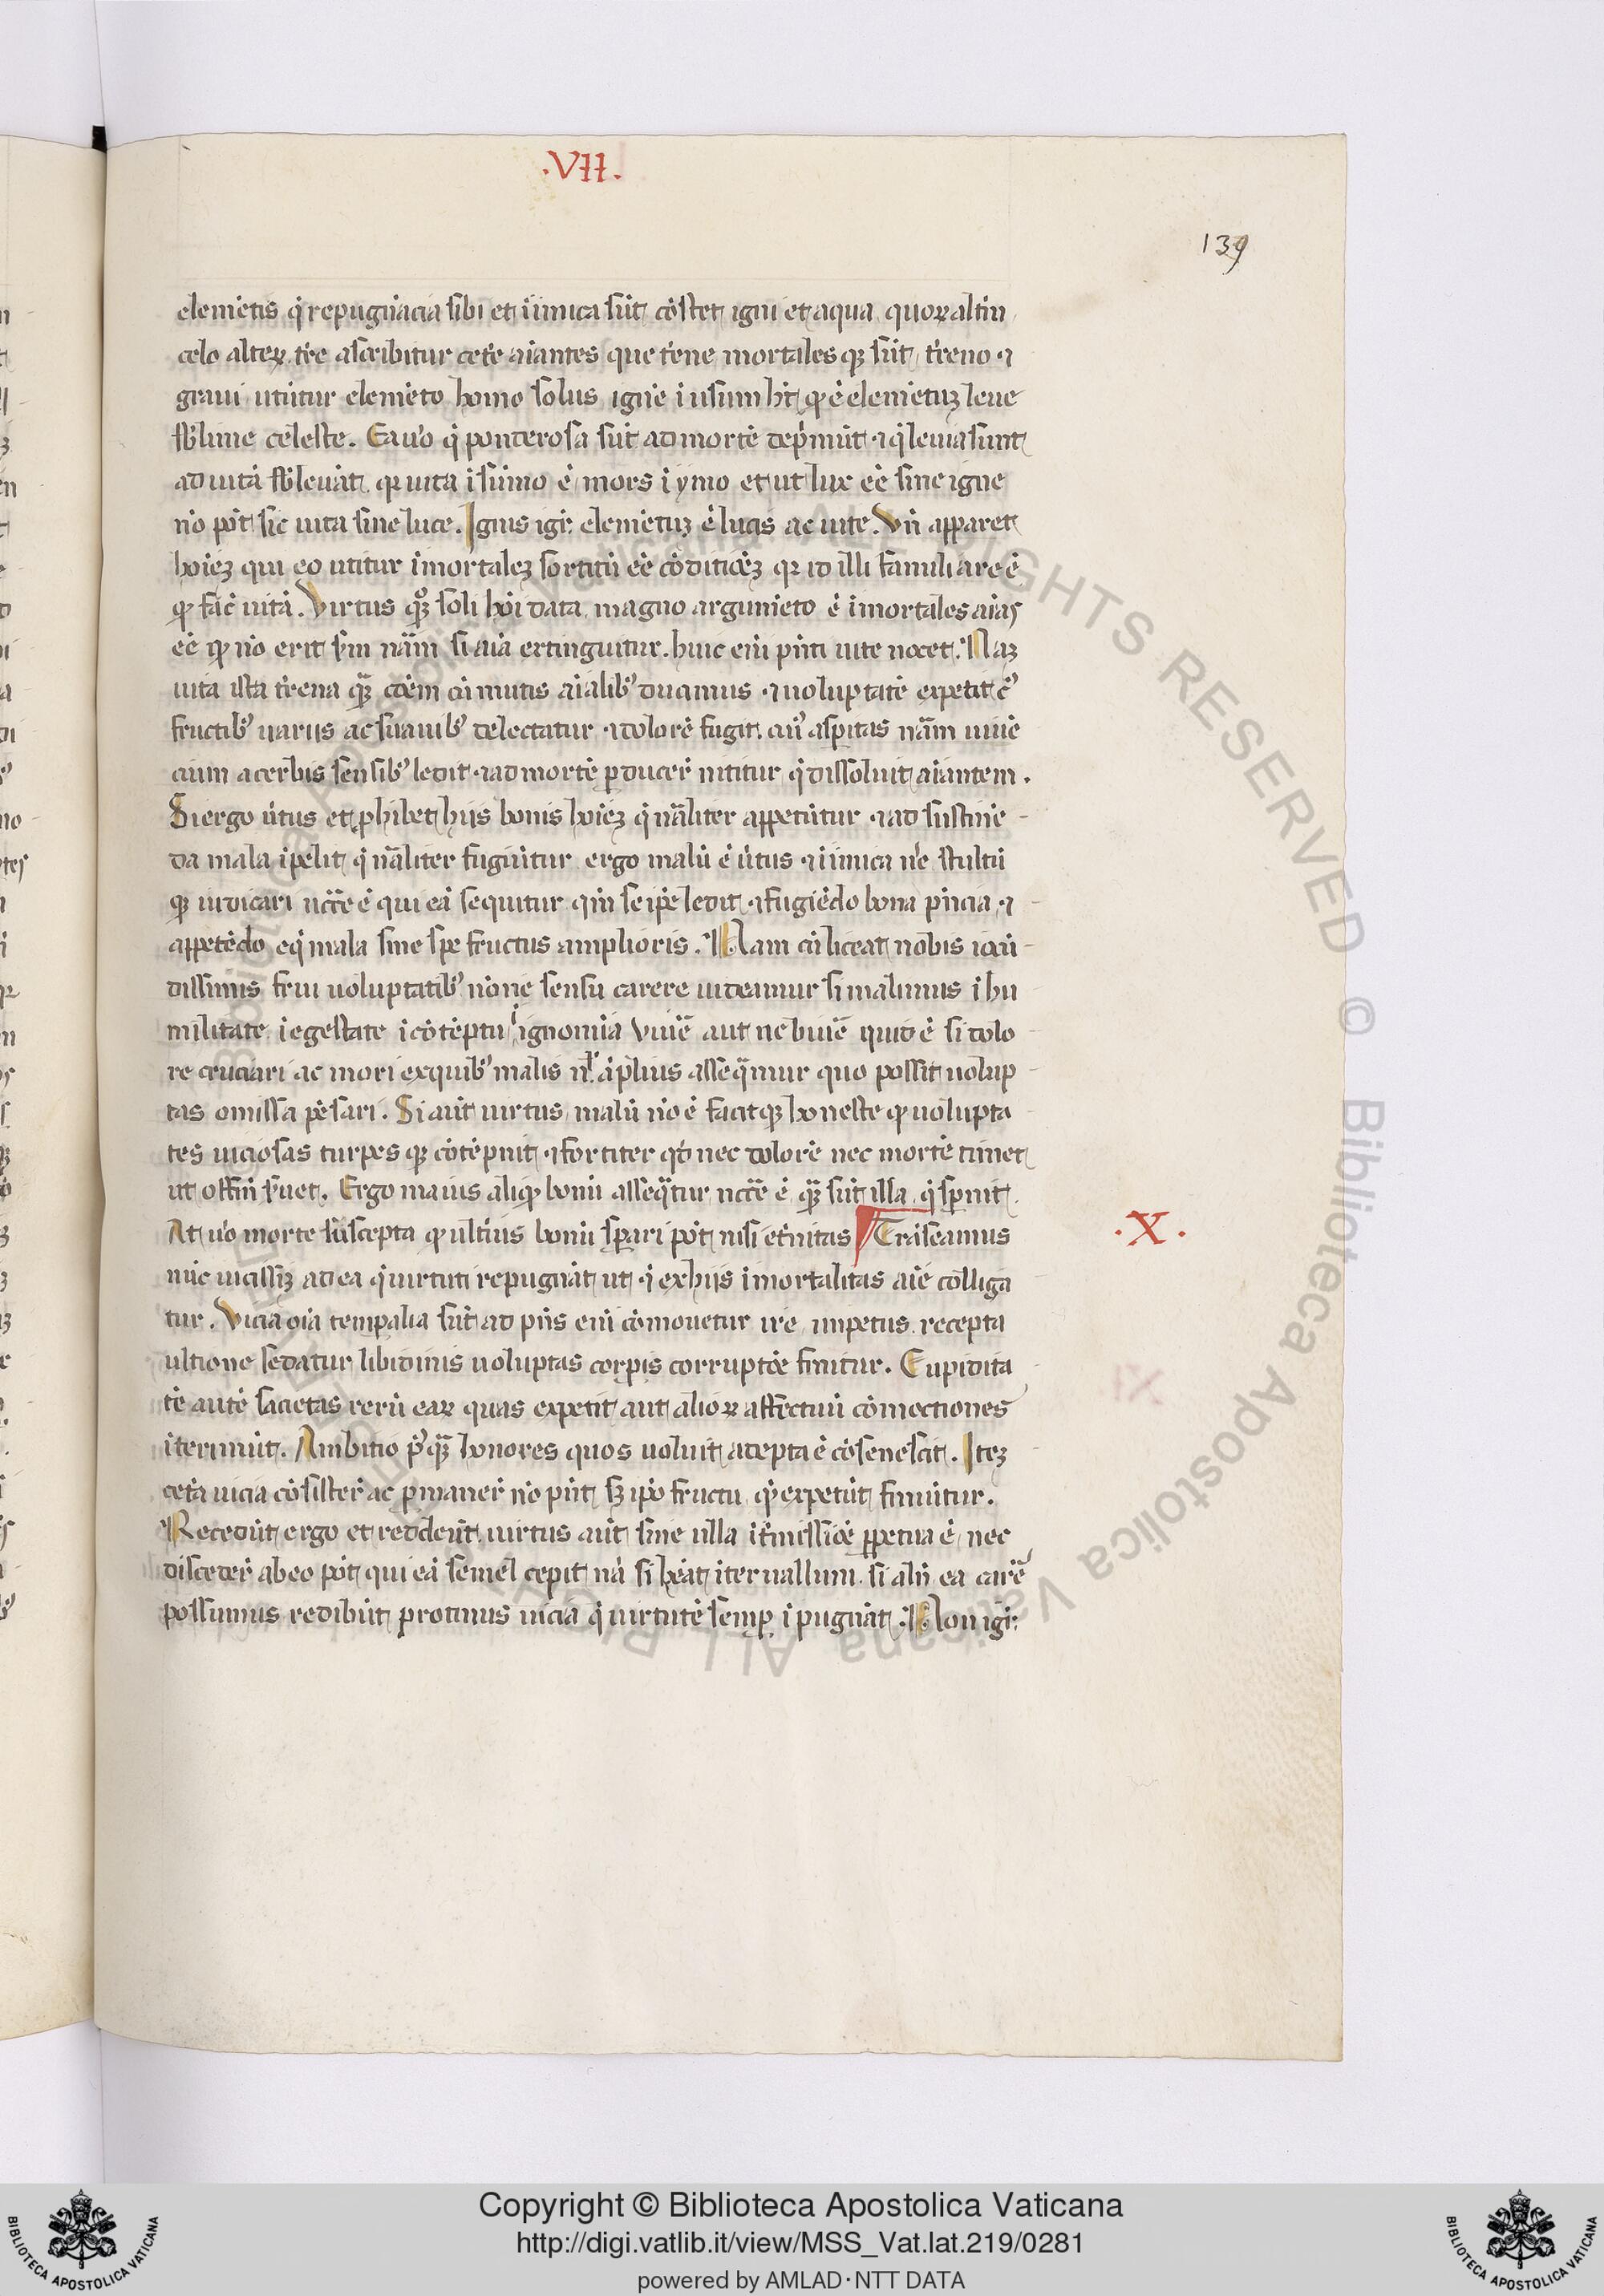 .VII.
139
elemētis q̇ repugnācia sibi et īimica sūt cōstet igni et aqua quoꝝ altm̄
celo alteꝝ tr̄e ascribitur cetē aīantes que tr̄ene mortalesqꝫ sūt tr̄eno ⁊
graui utūtur elemēto homo solus igne ī usum hꝫ qđ ē elemētuꝫ leue
sb̄lime celeste. Ea uo q̇ ponderosa sūt ad mortē dep̄mūt ⁊ q̇ leuia sunt
ad uitā sb̄leuāt qꝛ uita ī sūmo ē mors ī ymo et ut lux eē sine igne
nō pōt sic uita sine luce. Ignis igr̄ elemētuꝫ ē lucis ac uite. Vn̄ apparet
hoīeꝫ qui eo utitur īmortaleꝫ sortitū eē cōdicōeꝫ qꝛ id illi familiare ē
qđ fac̄ uitā. Virtus qꝫ soli hōi data magno argumēto ē īmortales aīas
eē qđ nō erit sm̄ nām si aīa extinguitur. huic enī pn̄ti uite nocet. Naꝫ
uita ista tr̄ena quā cōēm cū mutis aīalibꝰ ducimus ⁊ uoluptatē expetit cꝰ
fructibꝰ uariis ac suauibꝰ delectatur ⁊ dolorē fugit cuiꝰ aspitas nām uiuē
cium acerbis sensibꝰ ledit ⁊ ad mortē ꝑducer̄ nititur q̇ dissoluit aīantem.
Si ergo ūtus et ꝓhibet hijs bonis hoīeꝫ q̇ nāliter appetūtur ⁊ ad sustinē
da mala īpelit q̇ nāliter fugiūtur ergo malū ē ūtus ⁊ īimica nē stultū
qꝫ iudicari ncc̄e ē qui eā sequitur qm̄ seipē ledit ⁊ fugiēdo bona pn̄cia ⁊
appetēdo eq̇ mala sine spe fructus amplioris. Nam cū liceat nobis iocū
dissimis frui uoluptatibꝰ nōne sensu carere uideamur si malimus ī hu
militate ī egestate ī cōtēptu ī ignomīa viuē aut ne viuē quid ē si dolo
re cruciari ac mori ex quibꝰ malis nl̄ āplius asseq̄mur quo possit uolup
tas omissa pēsari. Si aūt uirtus malū nō ē facitqꝫ honeste qđ uolupta
tes uiciosas turpesqꝫ cōtēpnit ⁊ fortiter qđ nec dolorē nec mortē timet
ut offm̄ suet. Ergo maius aliqđ bonū asseq̄tur ncc̄e ē quā sūt illa q̇ spnit.
At uo morte suscepta qđ ultius bonū sperari pōt nisi et̄nitas Trāseamus
.X.
nūc uicissiꝫ ad ea q̇ uirtuti repugnāt ut q̇ ex hijs īmortalitas aīe colliga
tur. Vicia oīa tempalia sūt ad pn̄s enī cōmouetur ire impetus recepta
ultione sedatur libidinis uoluptas corpis corruptōe finitur. Cupidita
tē autē sacietas rerū eaꝝ quas expetit aut alioꝝ affectuū cōmociones
īterimūt. Ambitio pꝰquā honores quos uoluit adepta ē cōsenescit. Iteꝫ
cet̄a uicia cōsister̄ ac ꝑmaner̄ nō pn̄t sꝫ ip̄o fructu quē expetūt finiūtur.
Recedūt ergo et reddeūt uirtus aūt sine ulla īt̄missiōe ꝑpetua ē nec
disceder̄ ab eo pōt qui eā semel cepit nā si heāt īteruallum si aliq̄ ea carē
possumus redibūt protinus uicia q̇ uirtutē semꝑ īpugnāt. Non igr̄
Copyright © Biblioteca Apostolica Vaticana
http://digi.vatlib.it/view/MSS_Vat.lat.219/0281
powered by AMLAD·NTT DATA